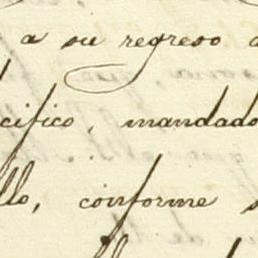 a su regreso
cifico, mandado
llo, conforme